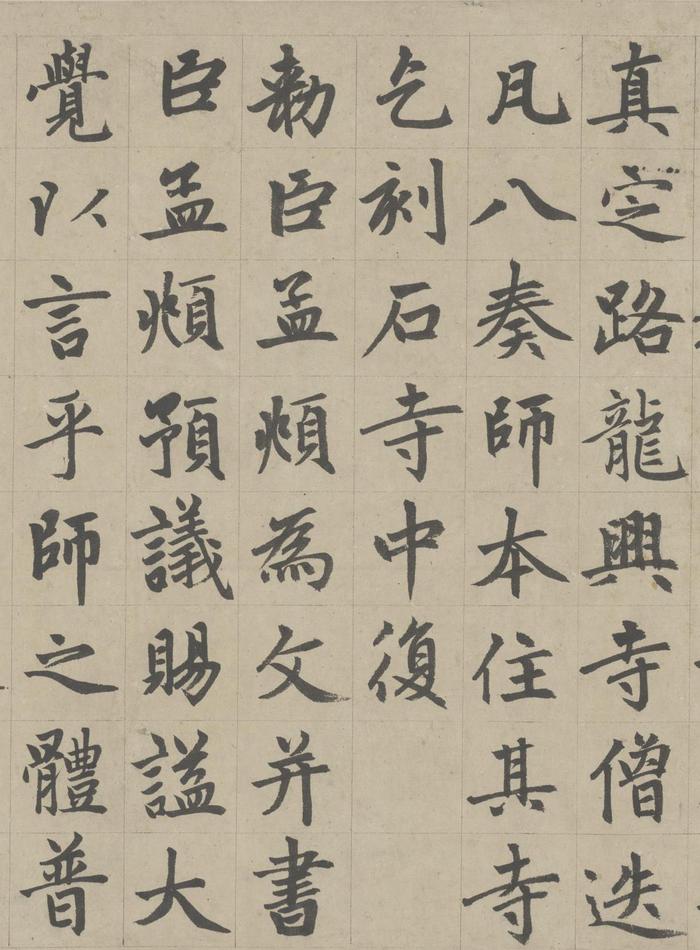 真定路龍興寺僧迭
凡八奏師本住其寺
乞刻石寺中復
勑臣孟頫為文并書
臣孟頫預議賜謚大
覺以言乎師之體普